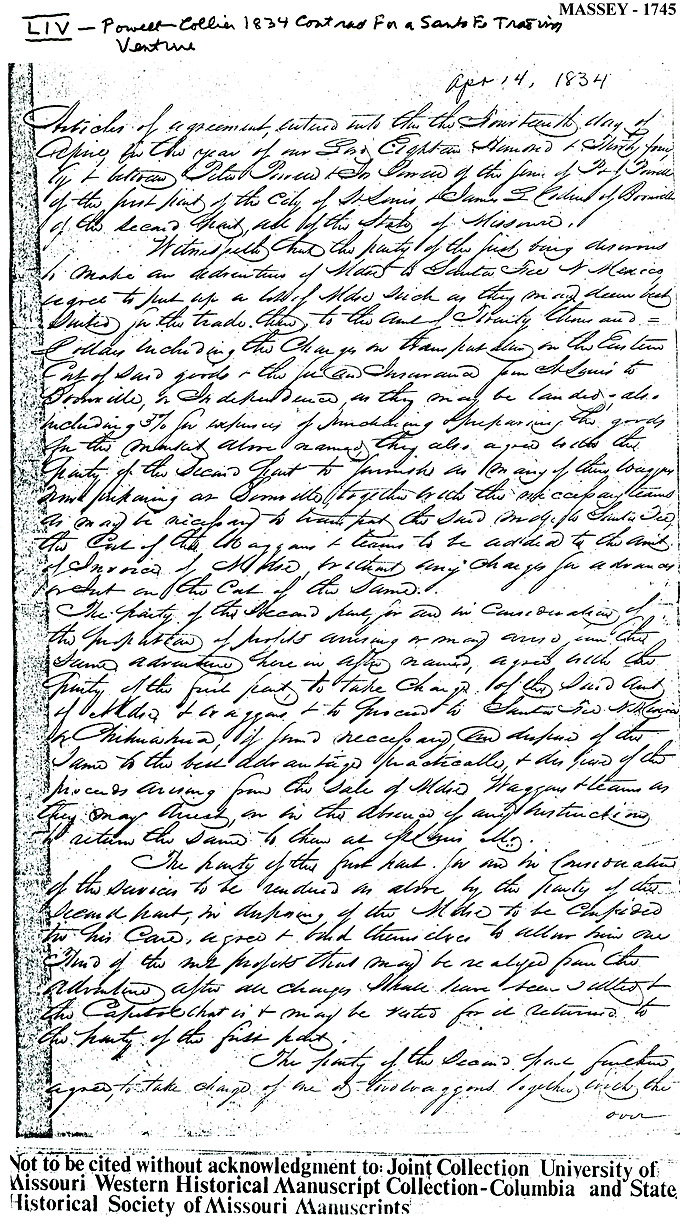 MASSEY - 1745
LIV — Powell-Collier 1834 Contract For a Santa Fe Trading
Venture
Apr 14, 1834
Articles of agreement, entered into this the Fourteenth day of
April in the year of our Lord Eighteen Hundred & Thirty four
by & between Peter Powell & Jos Powell of the firm of P & J Powell
of the first part of the City of St Louis & James L Collins of Boonville
of the second part, all of the State of Missouri.
Witnesseth that the party of the first being desirous
to make an adventure of Mdse to Santa Fee N Mexico
agree to put up a lot of Mdse such as they may deem best
suited for the trade there, to the amt of Twenty thousand =
Dollars including the Charges on transportation on the Eastern
Cost of said goods & the Insurance from St Louis to
Boonville, or Independence, as they may be landed, also
including 5% for expenses of purchasing & preparing the goods
for the market above named, they also agree with the
party of the second part to furnish as many of their waggons
now preparing at Boonville together with the neccessary teams
as may be necessary to transport the said mdse to Santa Fee,
the Cost of the Waggons & teams to be added to the amt
of Invoice of Mdse, without any charges for advance
on the Cost of the same.
The party of the second part for and in Consideration of
the proportion of profits arising or may arise from the
same adventure here in after named, agree with the
party of the first part, to take charge of the said amt
of Mdse & waggons, & to proceed to Santa Fee N Mexico
or Chihuahua, if found neccessary and dispose of the
same to the best advantage practicable, & dispose of the
proceeds arising from the sale of Mdse, Waggons & teams as
they may direct, or in the absence of any instruction
to return the same to them at St Louis Mo.
The party of the first part for and in Consideration
of the services to be rendered as above by the party of the
second part, in disposing of the Mdse to be confided
to his Care, agree & bind themselves to allow him one
Third of the net profits that may be realized from the
adventure after all charges shall have been settled &
the Capitol that is & may be vested for it returned to
the party of the first part.
The party of the second part further
agree to take charge of one or two waggons together with the
over
Not to be cited without acknowledgment to: Joint Collection University of
Missouri Western Historical Manuscript Collection-Columbia and State
Historical Society of Missouri Manuscripts